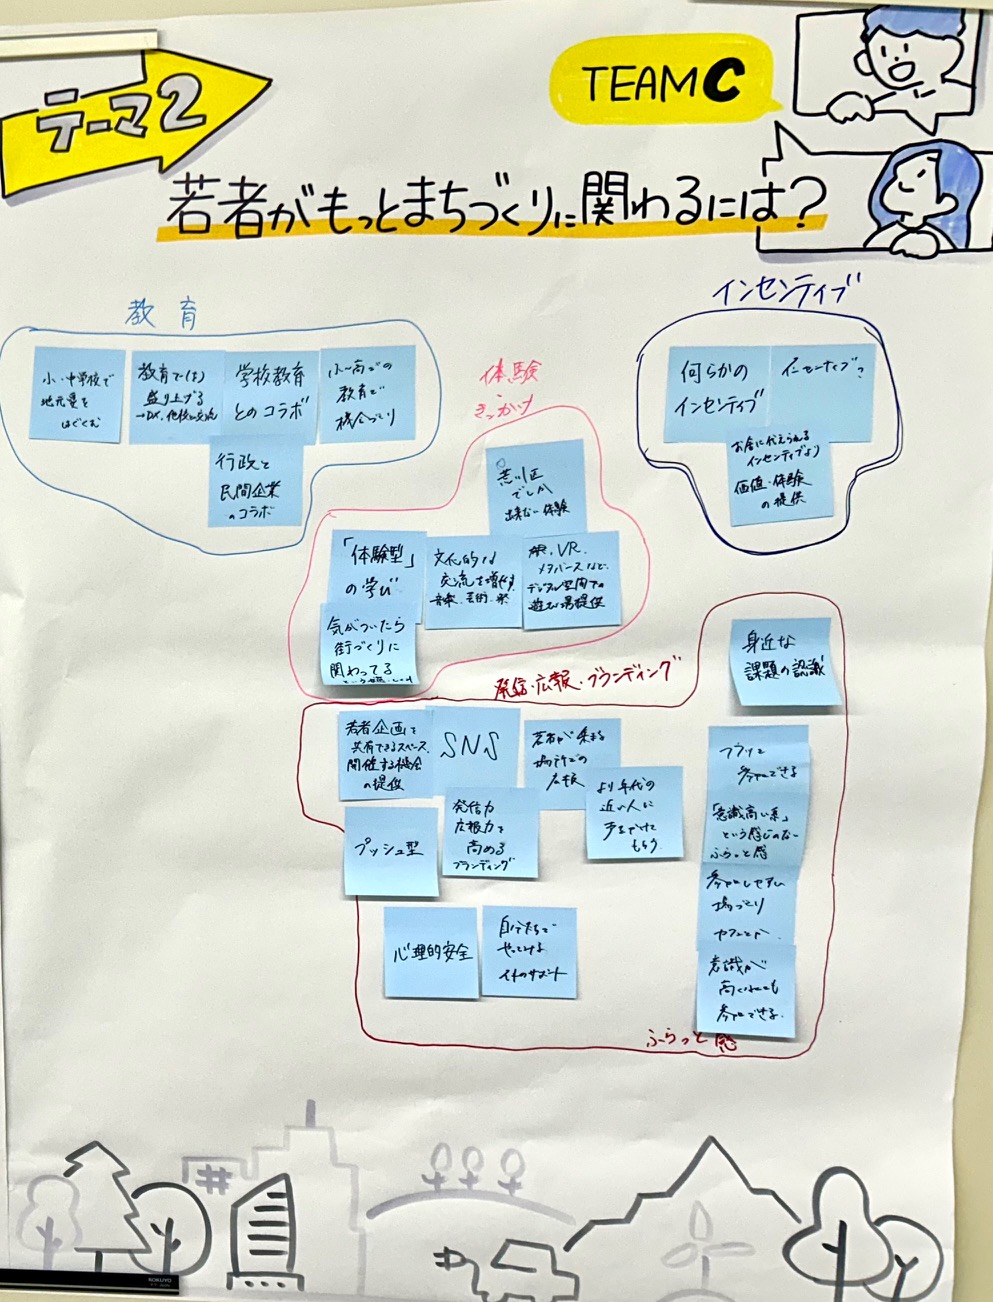 テーマ2
TEAM C
若者がもっとまちづくりに関わるには?
教育
小・中学校で
地元愛を
はぐくむ
教育でしょう
盛り上げる
→DX、他校と交流
学校教育
とのコラボ
小〜高での
教育で
機会づくり
行政と
民間企業
のコラボ
インセンティブ
何らかの
インセンティブ
インセンティブ?
お金に代えられる
インセンティブより
価値・体験
の提供
体験
きっかけ
荒川区
でしか
出来ない体験
「体験型」
の学び
文化的な
交流を増やす
音楽、芸術、祭
VR、
メタバースなど、
デジタル空間での
遊び場提供
気がついたら
街づくりに
関わってる
発信・広報・ブランディング
身近な
課題の認識
若者企画を
共有できるスペース、
開催する機会
の提供
SNS
若者が集まる
場所での
広報
より年代の
近い人に
声をかけて
もらう。
プッシュ型
発信力
広報力を
高める
ブランディング
フラッと
参加できる
「意識高い系」
という感じのない
ふらっと感
参加しやすい
場づくり
意識が
高くなくても
参加できる。
心理的安全
自分たちで
やってみよ
イチのサポート
ふらっと感
KOKUYO